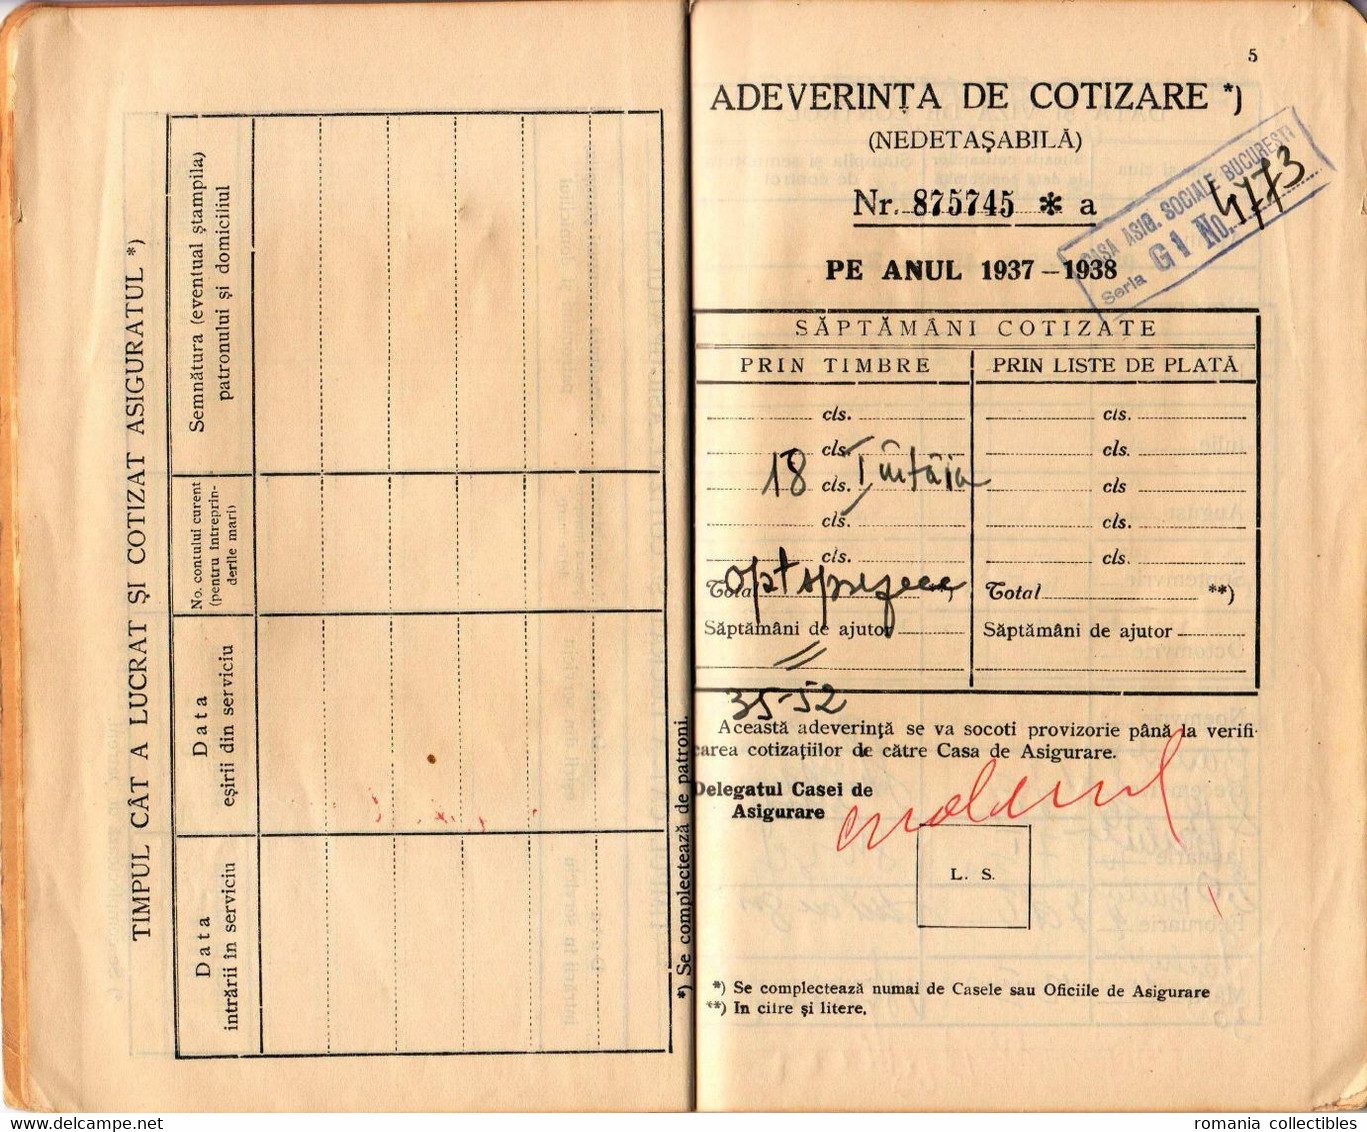 TIMPUL CÂT A LUCRAT ŞI COTIZAT ASIGURATUL *)
Semnătura (eventual ştampila)
patronului şi domiciliul
No. contului curent
(pentru întreprin-
derile mari)
Data
eşirii din serviciu
Data
intrării în serviciu
*) Se complectează de patroni.
5
ADEVERINŢA DE COTIZARE *)
(NEDETAŞABILĂ)
Nr. 875745 * a
CASA ASIG. SOCIALE BUCUREŞTI
Seria G1 No. 4773
PE ANUL 1937-1938
SĂPTĂMÂNI COTIZATE
PRIN TIMBRE PRIN LISTE DE PLATĂ
cls. cls.
cls. cls.
18 cls. Întâia cls
cls. cls.
cls. cls.
Total optsprezece **) Total **)
Săptămâni de ajutor Săptămâni de ajutor
35-52
Această adeverinţă se va socoti provizorie până la verifi-
carea cotizaţiilor de către Casa de Asigurare.
Delegatul Casei de
Asigurare
L. S.
*) Se complectează numai de Casele sau Oficiile de Asigurare
**) In cifre şi litere.
romania collectibles